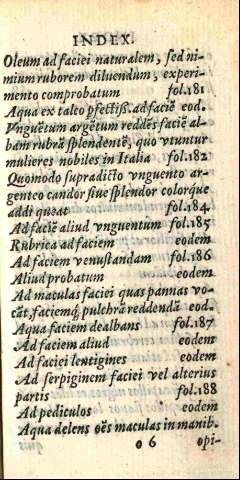 INDEX.
Oleum ad faciei naturalem, sed ni-
mium ruborem diluendum, experi-
mento comprobatum fol.181
Aqua ex talco pfectiss. ad faciē eod.
Vnguētum argētum reddēs faciē al-
bam rubrā splendentē, quo vtuntur
mulieres nobiles in Italia fol.182
Quomodo supradicto vnguento ar-
genteo candor siue splendor colorque
addi queat fol.184.
Ad faciē aliud vnguentum fol.185
Rubrica ad faciem eodem
Ad faciem venustandam fol.186
Aliud probatum eodem
Ad maculas faciei quas pannas vo-
cāt, faciemq; pulchrā reddendā eod.
Aqua faciem dealbans fol.187
Ad faciem aliud eodem
Ad faciei lentigines eodem
Ad serpiginem faciei vel alterius
partis fol.188
Ad pediculos eodem
Aqua delens oēs maculas in manib.
o 6 opi-